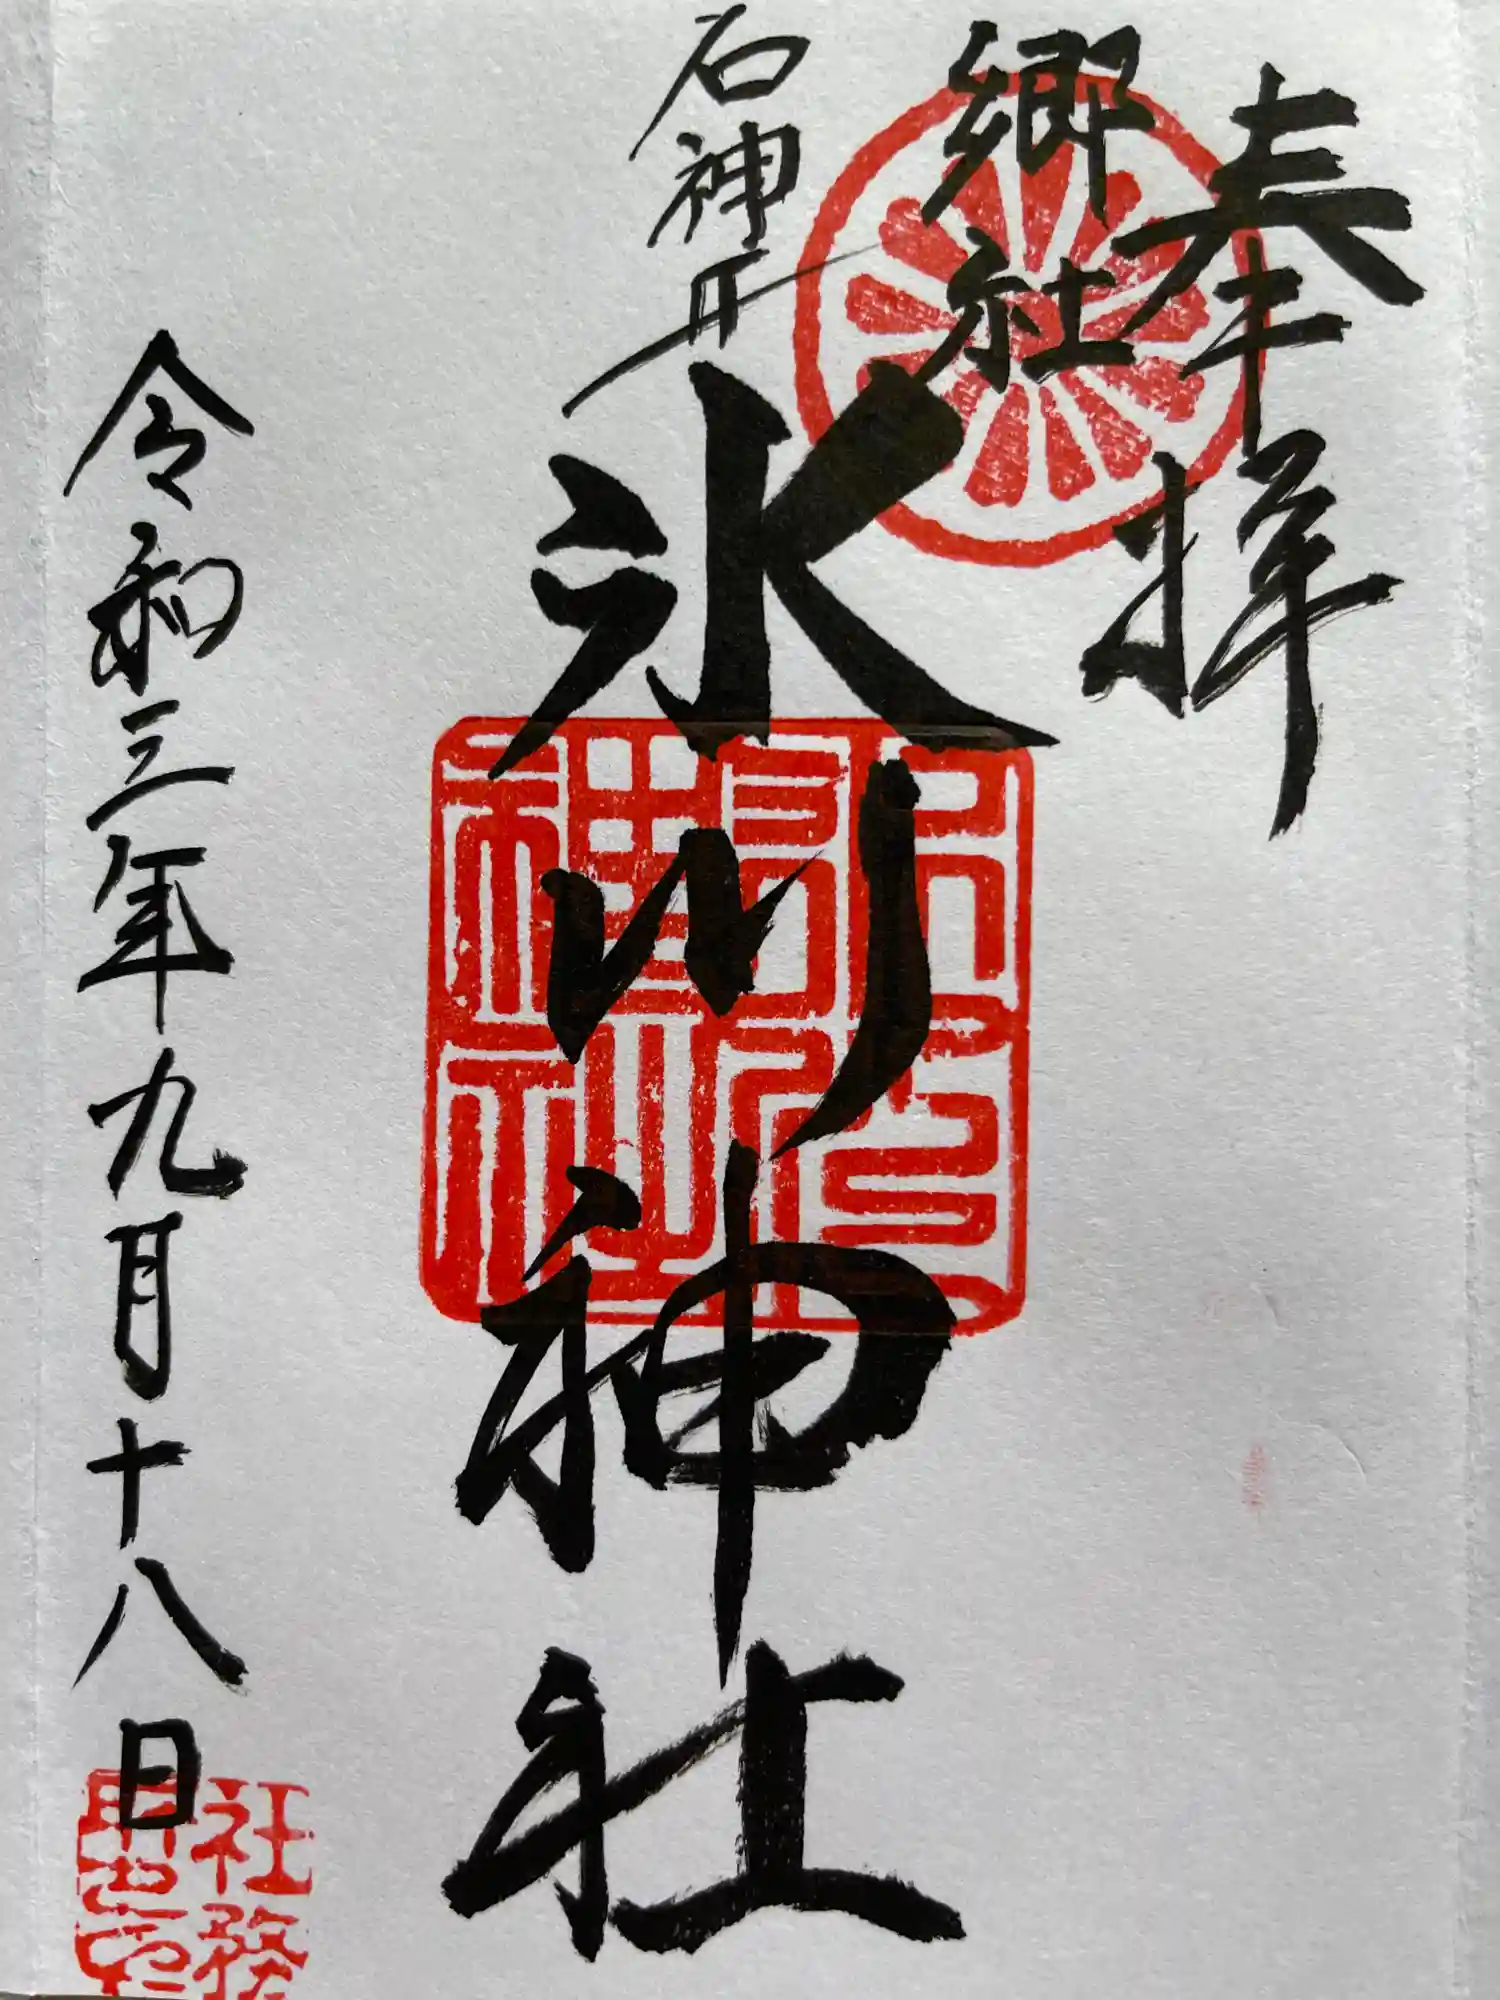 奉拝
郷社
石神井
氷川神社
令和三年九月十八日
社務